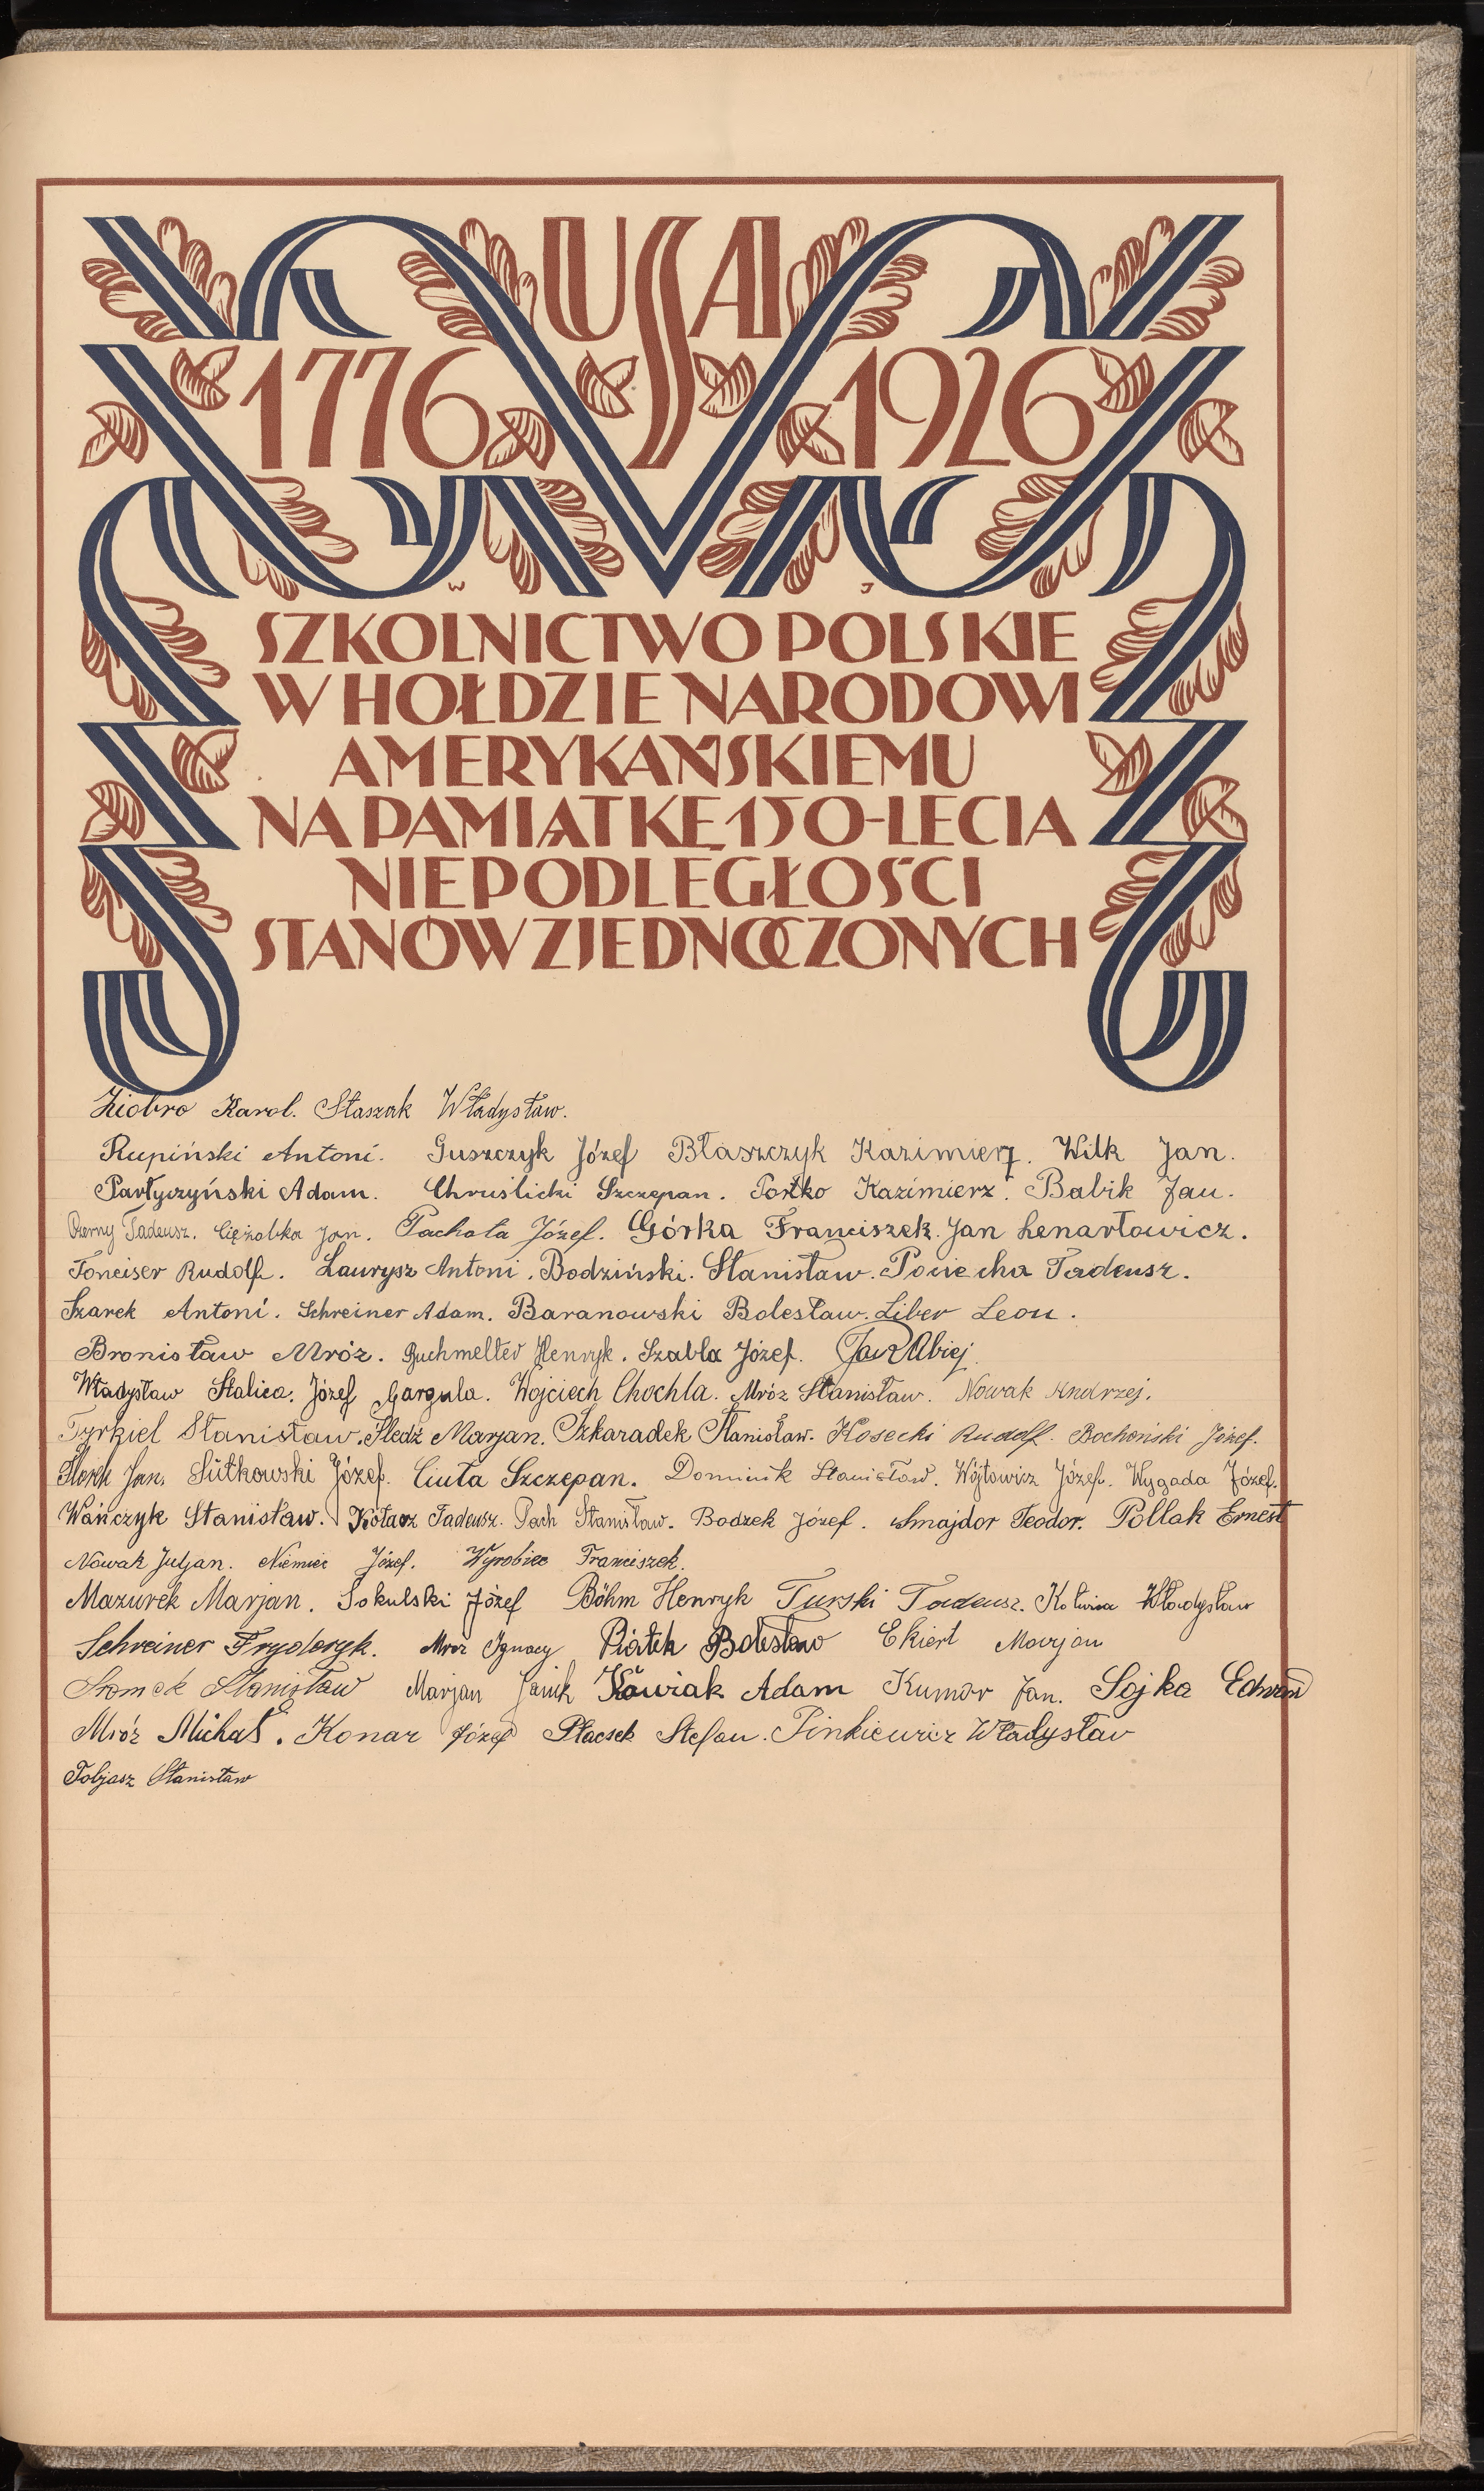 USA
1776 1926
W J
SZKOLNICTWO POLSKIE
W HOŁDZIE NARODOWI
AMERYKAŃSKIEMU
NA PAMIĄTKĘ 150-LECIA
NIEPODLEGŁOŚCI
STANÓW ZJEDNOCZONYCH
Ziobro Karol. Staszak Władysław.
Rupiński Antoni. Guszczyk Józef Błaszczyk Kazimierz. Wilk Jan.
Partyczyński Adam. Chruślicki Szczepan. Portko Kazimierz. Babik Jan.
Czerny Tadeusz. Ciężabka Jan. Pachota Józef. Górka Franciszek. Jan Lenartowicz.
Fonciser Rudolf. Laurysz Antoni. Bodziński. Stanisław. Pociecha Tadeusz.
Szarek Antoni. Schreiner Adam. Baranowski Bolesław. Liber Leon.
Bronisław Mróz. Buchmelter Henryk. Szabla Józef.
Władysław Stalica. Józef Gargula. Wojciech Chochla. Mróz Stanisław. Nowak Andrzej.
Tyrkiel Stanisław. Śledź Marjan. Szkaradek Stanisław. Kosecki Rudolf. Bochoński Józef.
Jan. Sutkowski Józef. Ciuta Szczepan. Dominik Stanisław. Wójtowicz Józef. Wygada Józef.
Wańczyk Stanisław. Kołacz Tadeusz. Pach Stanisław. Bodzek Józef. Smajdor Teodor. Pollak Ernest
Nowak Juljan. Niemiec Józef. Wyrobiec Franciszek.
Mazurek Marjan. Sokulski Józef Böhm Henryk Turski Tadeusz. Kotwica Władysław
Schreiner Fryderyk. Mróz Ignacy Piątek Bolesław Ekiert Marjan
Słomek Stanisław Marjan Janik Kawiak Adam Kumor Jan. Sojka Edward
Mróz Michał. Konar Józef Płaczek Stefan. Pinkiewicz Władysław
Tobjasz Stanisław